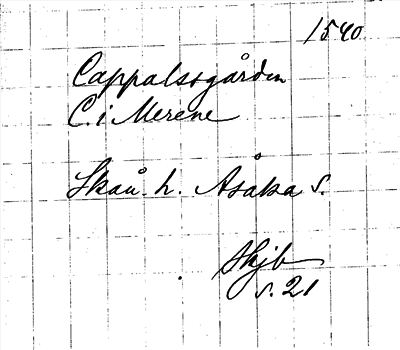 1540
Cappalssgården
C. i Merene
Skån. h. Åsaka s.
Hkjb
s. 21